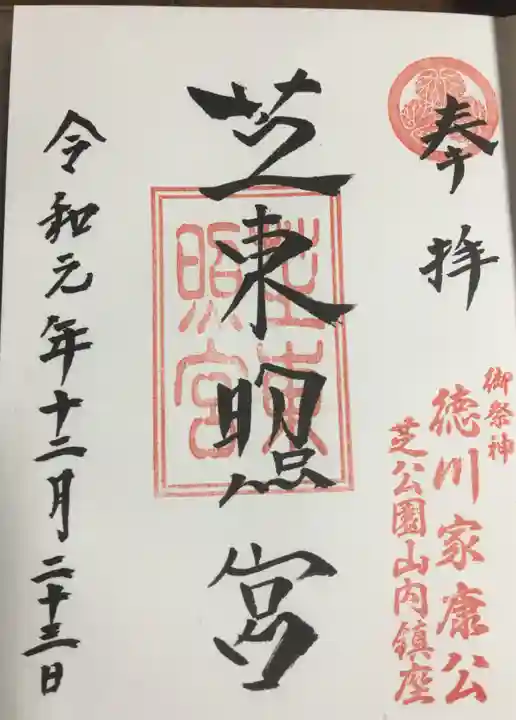 奉拝
御祭神
徳川家康公
芝公園山内鎮座
芝東照宮
芝東照宮
令和元年十二月二十三日